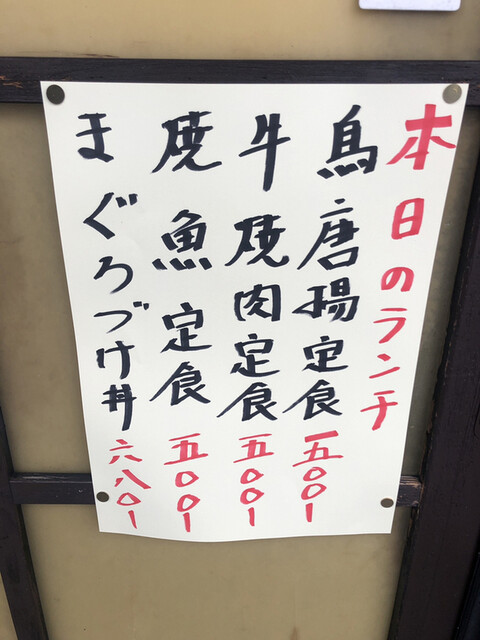 本日のランチ
鳥唐揚定食 五〇〇ー
牛焼肉定食 五〇〇ー
焼魚定食 五〇〇ー
まぐろづけ丼 六八〇ー